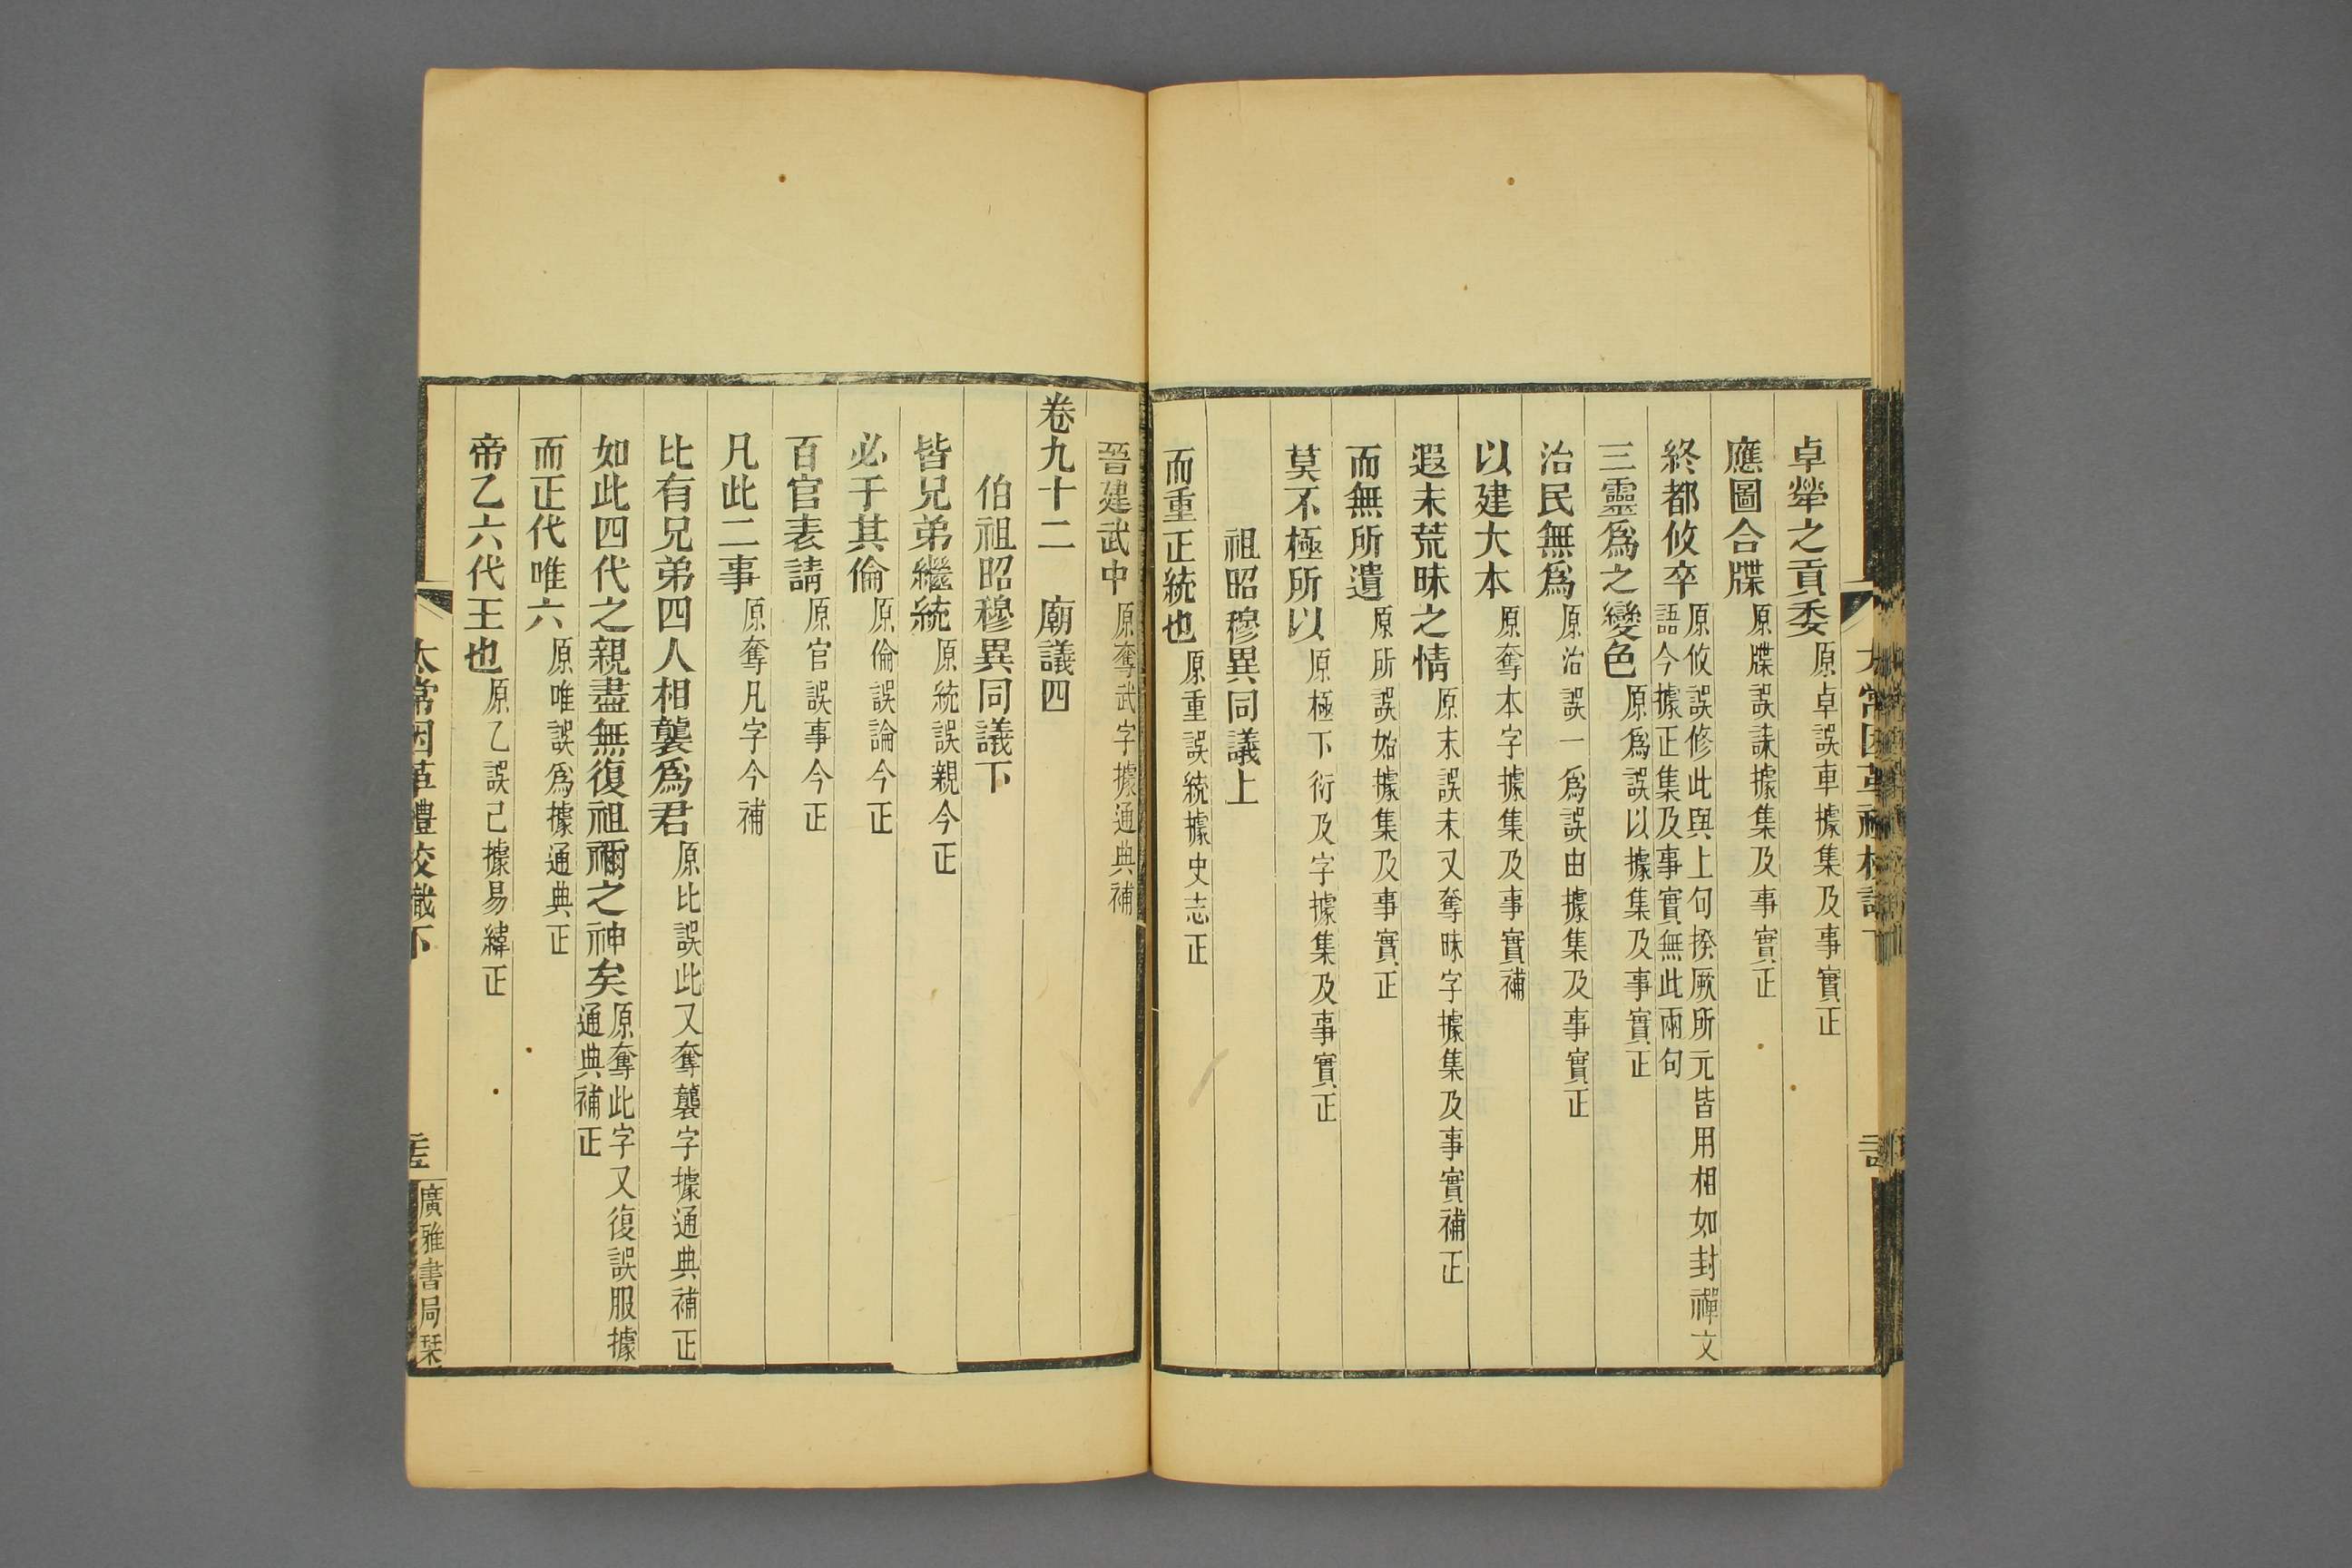 卓犖之貢委原卓誤車據集及事實正
應圖合牒原牒誤諌據集及事實正
終都攸卒原攸誤修此與上句揆厥所元皆用相如封禪文
語今據正集及事實無此兩句
三靈爲之變色原爲誤以據集及事實正
治民無爲原治誤一爲誤由據集及事實正
以建大本原奪本字據集及事實補
遐末荒昧之情原末誤未又奪昧字據集及事實補正
而無所遺原所誤始據集及事實正
莫不極所以原極下衍及字據集及事實正
祖昭穆異同議上
而重正統也原重誤統據史志正
晉建武中原奪武字據通典補
卷九十二 廟議四
伯祖昭穆異同議下
皆兄弟繼統原統誤親今正
必于其倫原倫誤論今正
百官表請原官誤事今正
凡此二事原奪凡字今補
比有兄弟四人相襲爲君原比誤此又奪襲字據通典補正
如此四代之親盡無復祖禰之神矣原奪此字又復誤服據
通典補正
而正代唯六原唯誤爲據通典正
帝乙六代王也原乙誤己據易緯正
太常因革禮校識下
廣雅書局栞